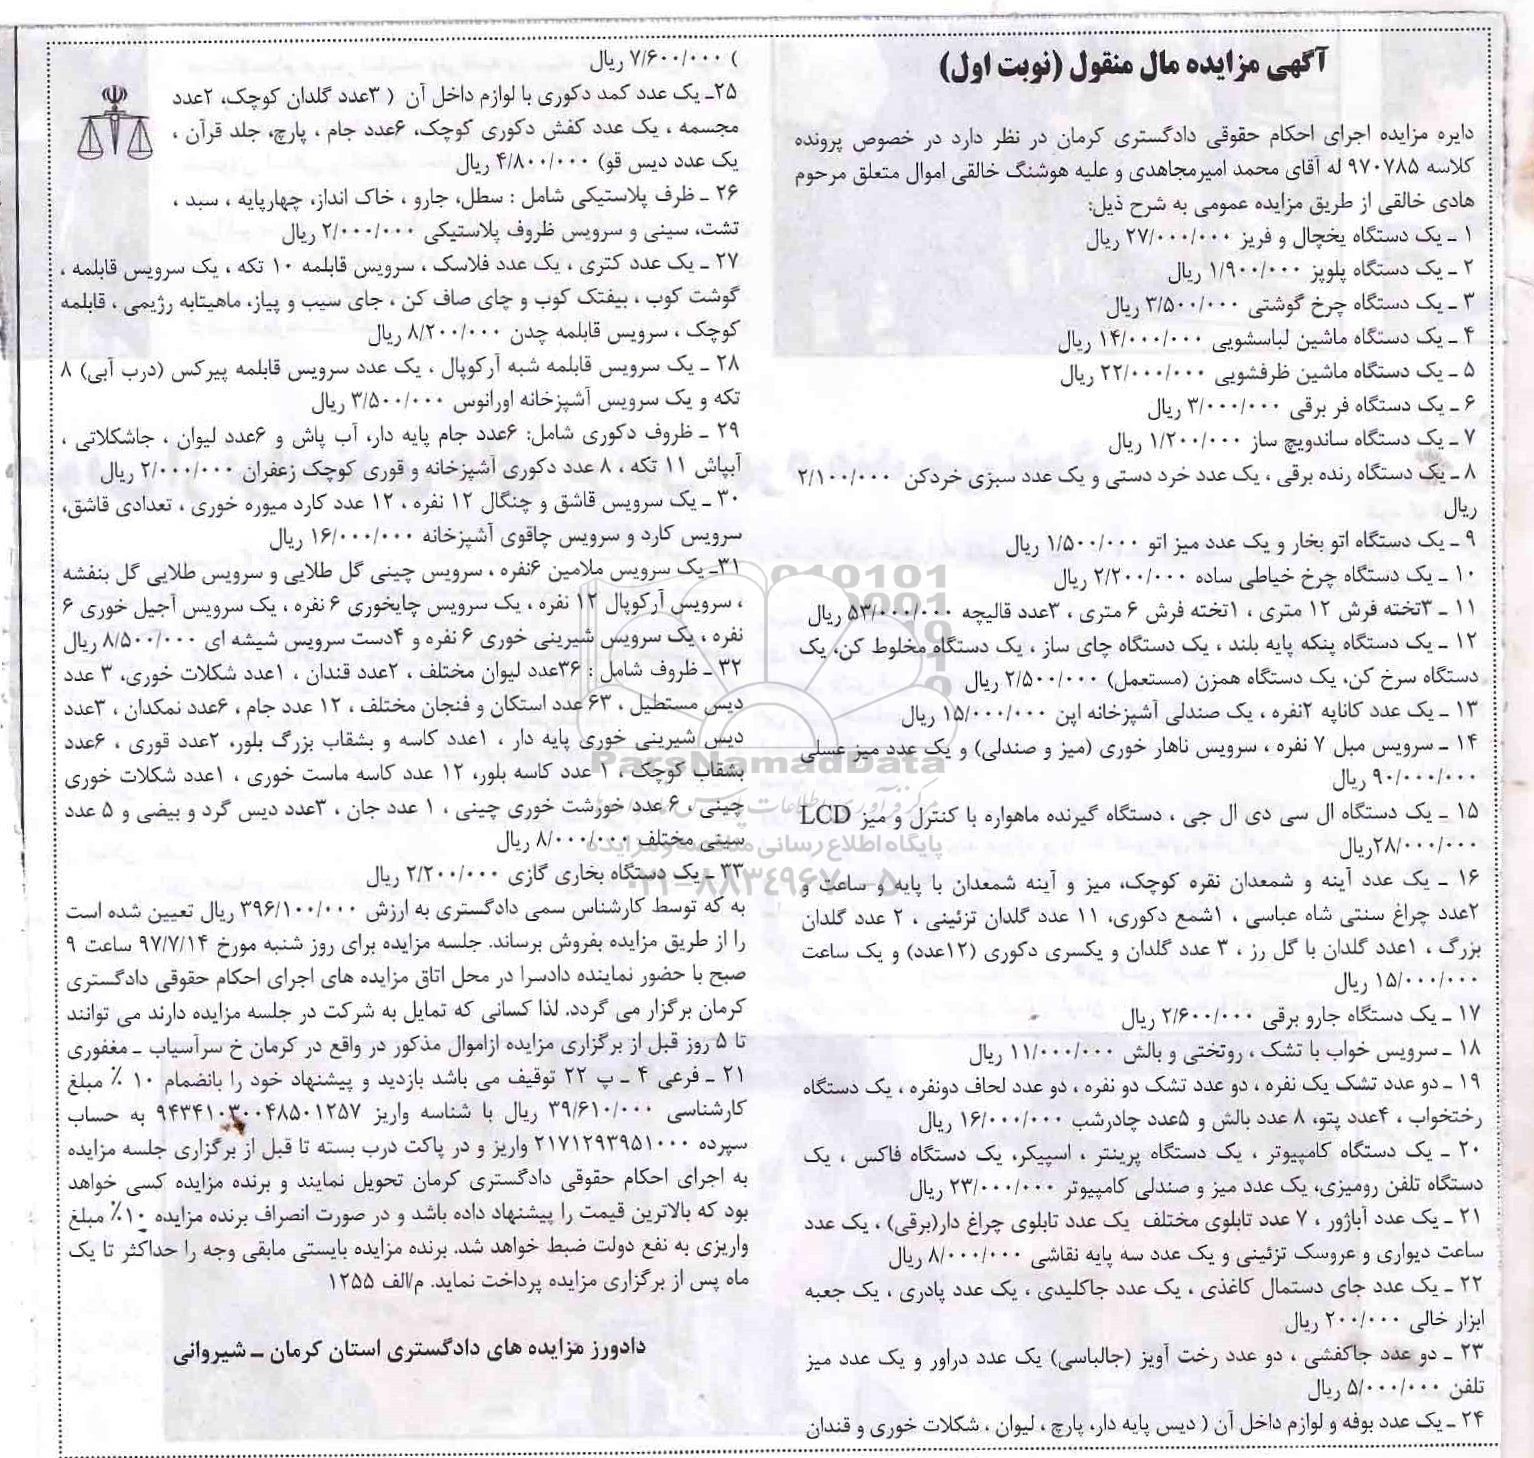 آگهی مزایده مال منقول (نوبت اول)
دایره مزایده اجرای احکام حقوقی دادگستری کرمان در نظر دارد در خصوص پرونده
کلاسه ۹۷۰۷۸۵ له آقای محمد امیرمجاهدی و علیه هوشنگ خالقی اموال متعلق مرحوم
هادی خالقی از طریق مزایده عمومی به شرح ذیل:
۱ ـ یک دستگاه یخچال و فریز ۲۷/۰۰۰/۰۰۰ ریال
۲ ـ یک دستگاه پلوپز ۱/۹۰۰/۰۰۰ ریال
۳ ـ یک دستگاه چرخ گوشتی ۳/۵۰۰/۰۰۰ ریال
۴ ـ یک دستگاه ماشین لباسشویی ۱۴/۰۰۰/۰۰۰ ریال
۵ ـ یک دستگاه ماشین ظرفشویی ۲۲/۰۰۰/۰۰۰ ریال
۶ ـ یک دستگاه فر برقی ۳/۰۰۰/۰۰۰ ریال
۷ ـ یک دستگاه ساندویچ ساز ۱/۲۰۰/۰۰۰ ریال
۸ ـ یک دستگاه رنده برقی ، یک عدد خرد دستی و یک عدد سبزی خردکن ۲/۱۰۰/۰۰۰
ریال
۹ ـ یک دستگاه اتو بخار و یک عدد میز اتو ۱/۵۰۰/۰۰۰ ریال
۱۰ ـ یک دستگاه چرخ خیاطی ساده ۲/۲۰۰/۰۰۰ ریال
۱۱ ـ ۳تخته فرش ۱۲ متری ، ۱تخته فرش ۶ متری ، ۳عدد قالیچه ۵۳/۰۰۰/۰۰۰ ریال
۱۲ ـ یک دستگاه پنکه پایه بلند ، یک دستگاه چای ساز ، یک دستگاه مخلوط کن، یک
دستگاه سرخ کن، یک دستگاه همزن (مستعمل) ۲/۵۰۰/۰۰۰ ریال
۱۳ ـ یک عدد کاناپه ۲نفره ، یک صندلی آشپزخانه اپن ۱۵/۰۰۰/۰۰۰ ریال
۱۴ ـ سرویس مبل ۷ نفره ، سرویس ناهار خوری (میز و صندلی) و یک عدد میز عسلی
۹۰/۰۰۰/۰۰۰ ریال
۱۵ ـ یک دستگاه ال سی دی ال جی ، دستگاه گیرنده ماهواره با کنترل و میز LCD
۲۸/۰۰۰/۰۰۰ریال
۱۶ ـ یک عدد آینه و شمعدان نقره کوچک، میز و آینه شمعدان با پایه و ساعت و
۲عدد چراغ سنتی شاه عباسی ، ۱شمع دکوری، ۱۱ عدد گلدان تزئینی ، ۲ عدد گلدان
بزرگ ، ۱عدد گلدان با گل رز ، ۳ عدد گلدان و یکسری دکوری (۱۲عدد) و یک ساعت
۱۵/۰۰۰/۰۰۰ ریال
۱۷ ـ یک دستگاه جارو برقی ۲/۶۰۰/۰۰۰ ریال
۱۸ ـ سرویس خواب با تشک ، روتختی و بالش ۱۱/۰۰۰/۰۰۰ ریال
۱۹ ـ دو عدد تشک یک نفره ، دو عدد تشک دو نفره ، دو عدد لحاف دونفره ، یک دستگاه
رختخواب ، ۴عدد پتو، ۸ عدد بالش و ۵عدد چادرشب ۱۶/۰۰۰/۰۰۰ ریال
۲۰ ـ یک دستگاه کامپیوتر ، یک دستگاه پرینتر ، اسپیکر، یک دستگاه فاکس ، یک
دستگاه تلفن رومیزی، یک عدد میز و صندلی کامپیوتر ۲۳/۰۰۰/۰۰۰ ریال
۲۱ ـ یک عدد آباژور ، ۷ عدد تابلوی مختلف یک عدد تابلوی چراغ دار(برقی) ، یک عدد
ساعت دیواری و عروسک تزئینی و یک عدد سه پایه نقاشی ۸/۰۰۰/۰۰۰ ریال
۲۲ ـ یک عدد جای دستمال کاغذی ، یک عدد جاکلیدی ، یک عدد پادری ، یک جعبه
ابزار خالی ۲۰۰/۰۰۰ ریال
۲۳ ـ دو عدد جاکفشی ، دو عدد رخت آویز (جالباسی) یک عدد دراور و یک عدد میز
تلفن ۵/۰۰۰/۰۰۰ ریال
۲۴ ـ یک عدد بوفه و لوازم داخل آن ( دیس پایه دار، پارچ ، لیوان ، شکلات خوری و قندان
) ۷/۶۰۰/۰۰۰ ریال
۲۵ـ یک عدد کمد دکوری با لوازم داخل آن ( ۳عدد گلدان کوچک، ۲عدد
مجسمه ، یک عدد کفش دکوری کوچک، ۶عدد جام ، پارچ، جلد قرآن ،
یک عدد دیس قو) ۴/۸۰۰/۰۰۰ ریال
۲۶ ـ ظرف پلاستیکی شامل : سطل، جارو ، خاک انداز، چهارپایه ، سبد ،
تشت، سینی و سرویس ظروف پلاستیکی ۲/۰۰۰/۰۰۰ ریال
۲۷ ـ یک عدد کتری ، یک عدد فلاسک ، سرویس قابلمه ۱۰ تکه ، یک سرویس قابلمه ،
گوشت کوب ، بیفتک کوب و چای صاف کن ، جای سیب و پیاز، ماهیتابه رژیمی ، قابلمه
کوچک ، سرویس قابلمه چدن ۸/۲۰۰/۰۰۰ ریال
۲۸ ـ یک سرویس قابلمه شبه آرکوپال ، یک عدد سرویس قابلمه پیرکس (درب آبی) ۸
تکه و یک سرویس آشپزخانه اورانوس ۳/۵۰۰/۰۰۰ ریال
۲۹ ـ ظروف دکوری شامل: ۶عدد جام پایه دار، آب پاش و ۶عدد لیوان ، جاشکلاتی ،
آبپاش ۱۱ تکه ، ۸ عدد دکوری آشپزخانه و قوری کوچک زعفران ۲/۰۰۰/۰۰۰ ریال
۳۰ ـ یک سرویس قاشق و چنگال ۱۲ نفره ، ۱۲ عدد کارد میوره خوری ، تعدادی قاشق،
سرویس کارد و سرویس چاقوی آشپزخانه ۱۶/۰۰۰/۰۰۰ ریال
۳۱ـ یک سرویس ملامین ۶نفره ، سرویس چینی گل طلایی و سرویس طلایی گل بنفشه
، سرویس آرکوپال ۱۲ نفره ، یک سرویس چایخوری ۶ نفره ، یک سرویس آجیل خوری ۶
نفره ، یک سرویس شیرینی خوری ۶ نفره و ۴دست سرویس شیشه ای ۸/۵۰۰/۰۰۰ ریال
۳۲ ـ ظروف شامل : ۳۶عدد لیوان مختلف ، ۲عدد قندان ، ۱عدد شکلات خوری، ۳ عدد
دیس مستطیل ، ۶۳ عدد استکان و فنجان مختلف ، ۱۲ عدد جام ، ۶عدد نمکدان ، ۳عدد
دیس شیرینی خوری پایه دار ، ۱عدد کاسه و بشقاب بزرگ بلور، ۲عدد قوری ، ۶عدد
بشقاب کوچک ، ۱ عدد کاسه بلور، ۱۲ عدد کاسه ماست خوری ، ۱عدد شکلات خوری
چینی ، ۶ عدد خورشت خوری چینی ، ۱ عدد جان ، ۳عدد دیس گرد و بیضی و ۵ عدد
سینی مختلف ۸/۰۰۰/۰۰۰ ریال
۳۳ ـ یک دستگاه بخاری گازی ۲/۲۰۰/۰۰۰ ریال
به که توسط کارشناس سمی دادگستری به ارزش ۳۹۶/۱۰۰/۰۰۰ ریال تعیین شده است
را از طریق مزایده بفروش برساند. جلسه مزایده برای روز شنبه مورخ ۹۷/۷/۱۴ ساعت ۹
صبح با حضور نماینده دادسرا در محل اتاق مزایده های اجرای احکام حقوقی دادگستری
کرمان برگزار می گردد. لذا کسانی که تمایل به شرکت در جلسه مزایده دارند می توانند
تا ۵ روز قبل از برگزاری مزایده ازاموال مذکور در واقع در کرمان خ سرآسیاب ـ مغفوری
۲۱ ـ فرعی ۴ ـ پ ۲۲ توقیف می باشد بازدید و پیشنهاد خود را بانضمام ۱۰ ٪ مبلغ
کارشناسی ۳۹/۶۱۰/۰۰۰ ریال با شناسه واریز ۹۴۳۴۱۰۳۰۰۴۸۵۰۱۲۵۷ به حساب
سپرده ۲۱۷۱۲۹۳۹۵۱۰۰۰ واریز و در پاکت درب بسته تا قبل از برگزاری جلسه مزایده
به اجرای احکام حقوقی دادگستری کرمان تحویل نمایند و برنده مزایده کسی خواهد
بود که بالاترین قیمت را پیشنهاد داده باشد و در صورت انصراف برنده مزایده ۱۰٪ مبلغ
واریزی به نفع دولت ضبط خواهد شد. برنده مزایده بایستی مابقی وجه را حداکثر تا یک
ماه پس از برگزاری مزایده پرداخت نماید. م/الف ۱۲۵۵
دادورز مزایده های دادگستری استان کرمان ـ شیروانی
ParsNamadData
پایگاه اطلاع رسانی مناقصه و مزایده
۰۲۱-۸۸۳۴۹۶۷۰-۵